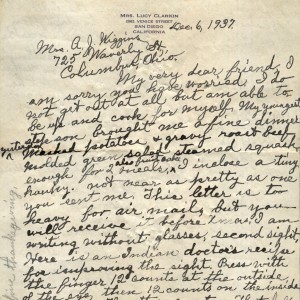 MRS. LUCY CLARION
VENICE STREET
SAN DIEGO
CALIFORNIA
Dec. 6, 1937
Mrs. A. J. Wiggins
725 Waverly St.
Columbus, Ohio.
My very dear friend, I
am sorry you have worried. I do
not get out at all but am able to
be up and cook for myself. My youngest
son brought me a fine dinner
yesterday
mashed potatoes & gravy roast beef
molded green salad steamed squash,
also fruit cake
enough for 2 meals, I inclose a tiny
hanky. not near as pretty as one
you sent me. This letter is to
heavy for air mail but you
will receive it before xmas. I am
writing without glasses, second sight.
Here is an Indian doctors recipe
for improving the sight. Press with
the finger 12 counts at the outside
of the eye, then 12 counts on the inside